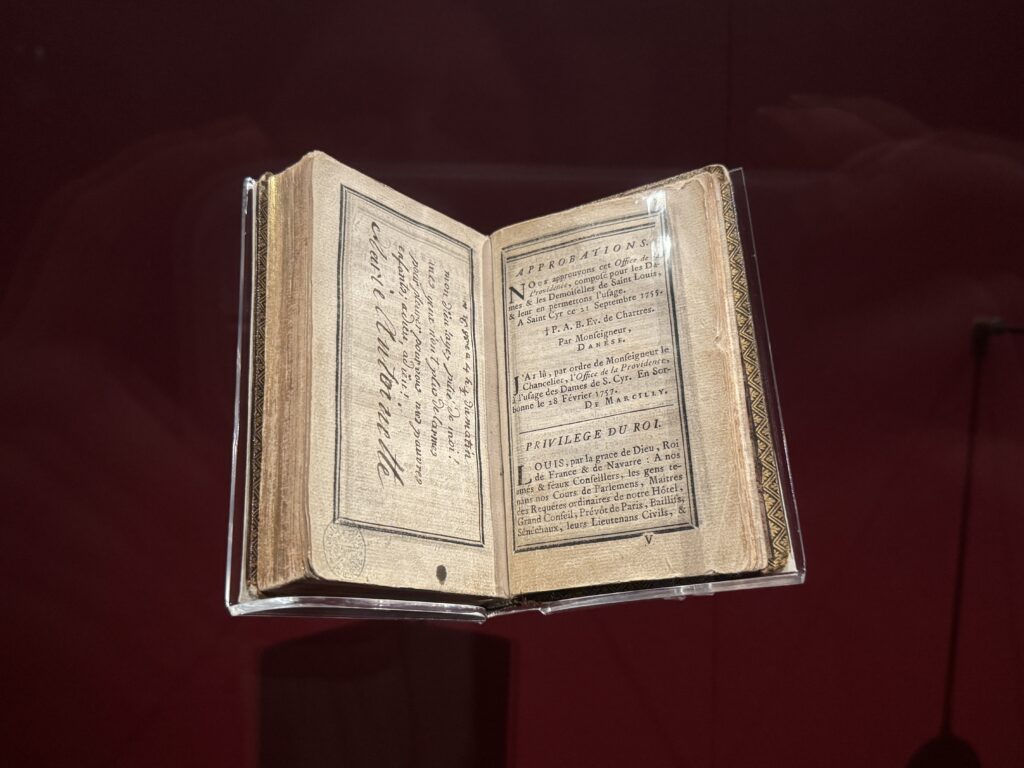 à 4 h du matin
mon Dieu ayez pitié de moi !
mes yeux n'ont plus de larmes
pour pleurer pour vous mes pauvres
enfants ; adieu, adieu !
Marie Antoinette
APPROBATIONS.
Nous approuvons cet Office de
Providence, composé pour les Da-
mes & les Demoiselles de Saint Louis,
& leur en permettons l'usage.
A Saint Cyr ce 21 Septembre 1755.
† P. A. B. Ev. de Chartres.
Par Monseigneur,
DANÈSE.
J'AI lû, par ordre de Monseigneur le
Chancelier, l'Office de la Providence,
à l'usage des Dames de S. Cyr. En Sor-
bonne le 28 Février 1757.
DE MARCILLY.
PRIVILEGE DU ROI.
LOUIS, par la grace de Dieu, Roi
de France & de Navarre : A nos
amés & féaux Conseillers, les gens te-
nans nos Cours de Parlemens, Maîtres
des Requêtes ordinaires de notre Hôtel,
Grand Conseil, Prévôt de Paris, Baillifs,
Sénéchaux, leurs Lieutenans Civils, &
V